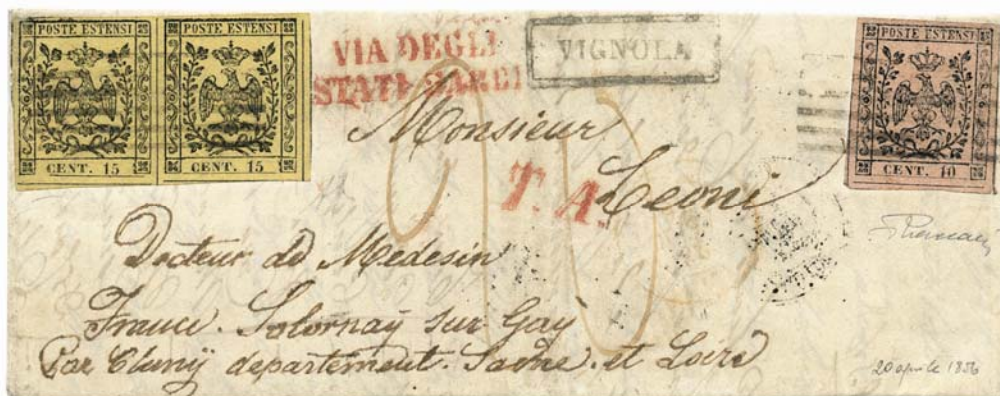 POSTE ESTENSI
CENT. 15
POSTE ESTENSI
CENT. 15
VIA DEGLI
STATI SARDI
VIGNOLA
POSTE ESTENSI
CENT. 10
Monsieur
T. A.
Leoni
Docteur de Medesin
France. Solornaÿ sur Gaÿ
Par Clunÿ departement. Saône. et Loire
20 aprile 1856